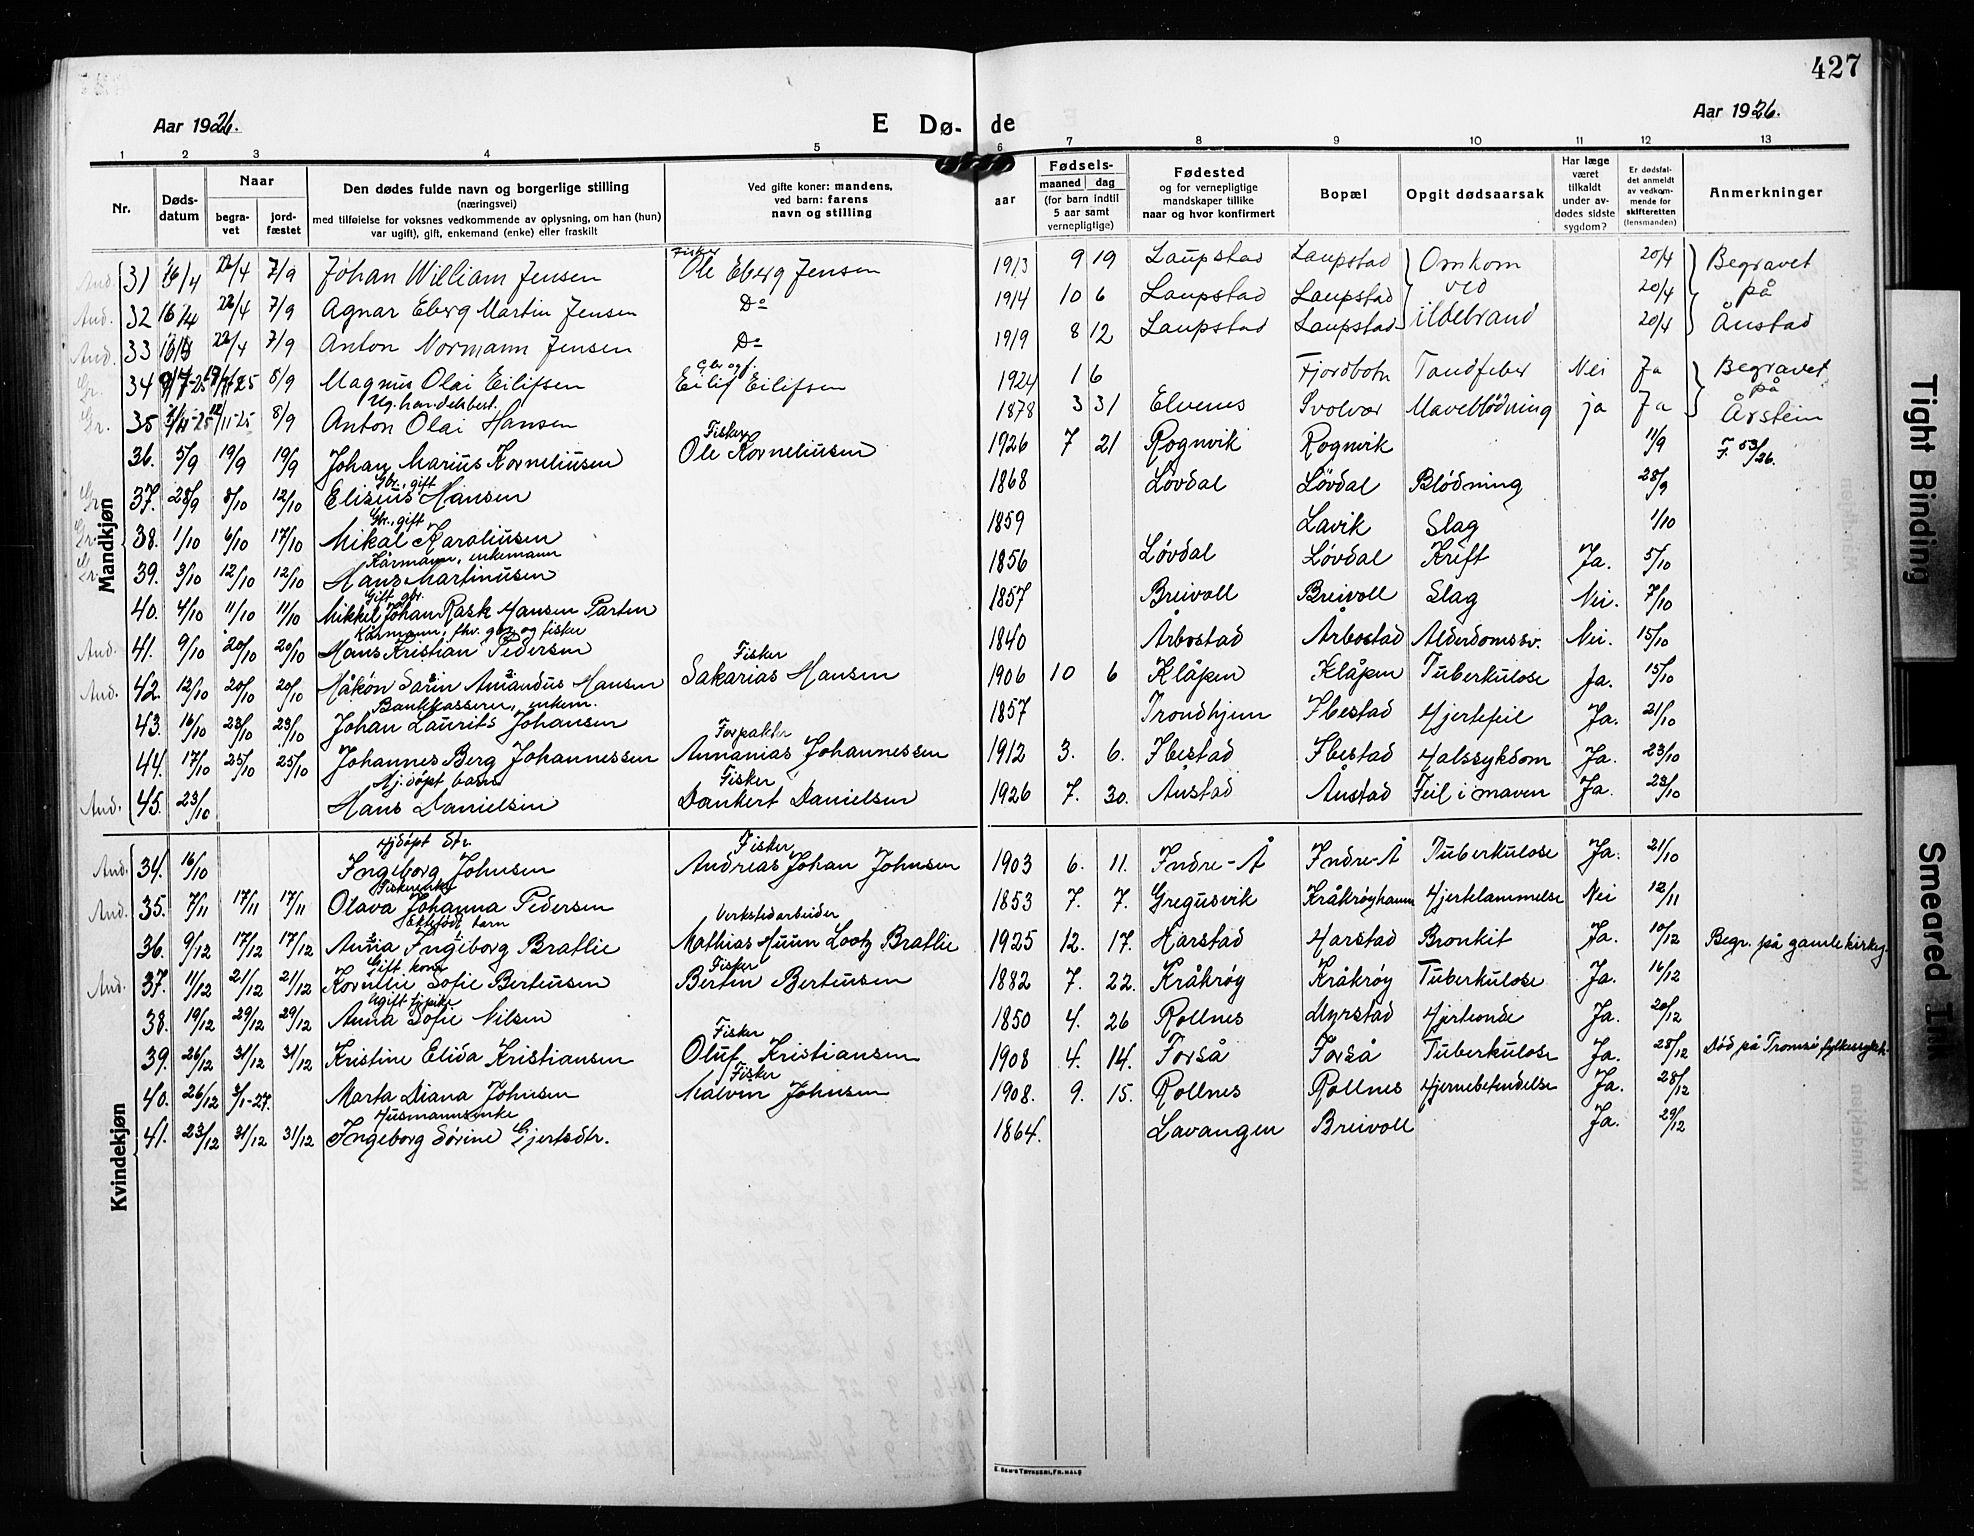 427
Aar 1926.
E Dø-
de
Aar 1926.
1 2 3 4 5 6 7 8 9 10 11 12 13
Nr.
Døds-datum
Naar
begra-vet
jord-fæstet
Den dødes fulde navn og borgerlige stilling
(næringsvei)
med tilføielse for voksnes vedkommende av oplysning, om han (hun)
var ugift), gift, enkemand (enke) eller fraskilt
Ved gifte koner: mandens,
ved barn: farens
navn og stilling
aar
Fødsels-
maaned dag
(for barn indtil
5 aar samt
vernepligtige)
Fødested
og for vernepligtige
mandskaper tillike
naar og hvor konfirmert
Bopæl
Opgit dødsaarsak
Har læge
været
tilkaldt
under av-
dødes sidste
sygdom?
Er dødsfal-
det anmeldt
av vedkom-
mende for
skifteretten
(lensmanden)
Anmerkninger
Mandkjøn
And. 31 16/4 22/4 7/9 Johan William Jensen Fisker Ole Eberg Jensen 1913 9 19 Laupstad Laupstad Omkom 20/4 Begravet
And. 32 16/4 22/4 7/9 Agnar Eberg Martin Jensen Do 1914 10 6 Laupstad Laupstad ved 20/4 på
And. 33 22/4 7/9 Anton Normann Jensen Do 1919 8 12 Laupstad Laupstad ildebrand 20/4 Ånstad
Gr. 34 8/9 Magnus Olai Eilifsen Gbr og f. Eilif Eilifsen 1924 1 6 Fjordbotn Tandfeber Nei Ja Begravet på
Gr. 35 8/9 Ug. handelsbest. Anton Olai Hansen 1878 3 31 Elvenes Svolvær Maveblödning ja Ja Årstein
36. 5/9 19/9 19/9 Johan Marius Korneliusen Fisker Ole Korneliusen 1926 7 21 Rognvik Rognvik 11/9 F. 53/26.
Gr. 37. 28/9 8/10 12/10 Gbr., gift Eliseus Hansen 1868 Lövdal Lövdal Blödning 28/9
Gr. 38. 1/10 6/10 17/10 Gbr., gift Mikal Karoliusen 1859 Lavik Slag 1/10
Gr. 39. 3/10 12/10 12/10 Kårmann, enkemann Hans Martinusen 1856 Lövdal Lövdal Kreft Ja. 5/10
40. 4/10 11/10 11/10 Gift gbr. Mikkel Johan Rask Hansen Parten 1857 Breivoll Breivoll Slag Nei. 7/10
And. 41. 9/10 20/10 20/10 Kårmann, fhv. gbr og fisker Hans Kristian Pedersen 1840 Årbostad Årbostad Alderdomssv. Nei. 15/10
And. 42. 12/10 20/10 20/10 Håkon Sarin Amandus Hansen Fisker Sakarias Hansen 1906 10 6 Klåpen Klåpen Tuberkulose Ja. 15/10
43. 16/10 23/10 23/10 Bankkasserer, enkem. Johan Laurits Johansen 1857 Trondhjem Ibestad Hjertefeil Ja. 21/10
44. 17/10 25/10 25/10 Johannes Berg Johannessen Forpakter Annanias Johannessen 1912 3. 6. Ibestad Ibestad Halssykdom Ja. 23/10
And. 45. 23/10 Hj. döpt barn Hans Danielsen Fisker Dankert Danielsen 1926 7. 30. Ånstad Ånstad Feil i maven Ja. 23/10
Kvindekjøn
And. 34. 16/10 Hjdöpt dtr. Ingeborg Johnsen Fisker Andreas Johan Johnsen 1903 6. 11. Indre-Å Indre-Å Tuberkulose Ja. 21/10
And. 35. 7/11 17/11 17/11 Fiskerenke Olava Johanna Pedersen 1853 7. 7. Gregusvik Kråkrøyhamn Hjertelammelse Nei 12/11
36. 9/12 17/12 17/12 Ektefödt barn Anna Ingeborg Bratlie Verkstedarbeider Mathias Huun Lootz Bratlie 1925 12. 17. Harstad Harstad Bronkit Ja. 10/12 Begr. på gamle kirkeg.
And. 37. 11/12 21/12 21/12 Gift kone Kornelie Sofie Berteusen Fisker Bertin Berteusen 1882 7. 22. Kråkrøy Kråkrøy Tuberkulose Ja. 16/12
38. 19/12 29/12 29/12 Anna Sofie Nilsen 1850 4. 26 Rollnes Myrstad Hjerteonde Ja. 20/12
39. 26/12 31/12 31/12 Kristine Elida Kristiansen Fisker Oluf Kristiansen 1908 4. 14. Forså Forså Tuberkulose Ja. 28/12 Död på Tromsö fylkessykeh.
40. 26/12 3/1-27. Marta Diana Johnsen Fisker Malvin Johnsen 1908. 9. 15. Rollnes Rollnes Hjernebetendelse Ja. 28/12
41. 23/12 31/12 31/12 Husmannsenke Ingeborg Sörine Gjertsdtr. 1864. Lavangen Breivoll Ja. 29/12
Tight Binding
Smeared Ink